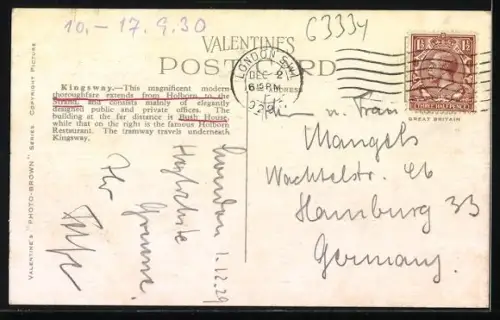 10. - 17. 9. 30
63334
VALENTINES
POSTCARD
Kingsway.—This magnificent modern
thoroughfare extends from Holborn to the
Strand, and consists mainly of elegantly
designed public and private offices. The
building at the far distance is Bush House,
while that on the right is the famous Holborn
Restaurant. The tramway travels underneath
Kingsway.
VALENTINE'S "PHOTO-BROWN" SERIES COPYRIGHT PICTURE
LONDON. S.W.1
DEC 2
GREAT BRITAIN
u. Frau
Mangels
Wachtelstr. 46
Hamburg 33
Germany.
London 1.12.29
Herzlichste
Grüsse
Ihr